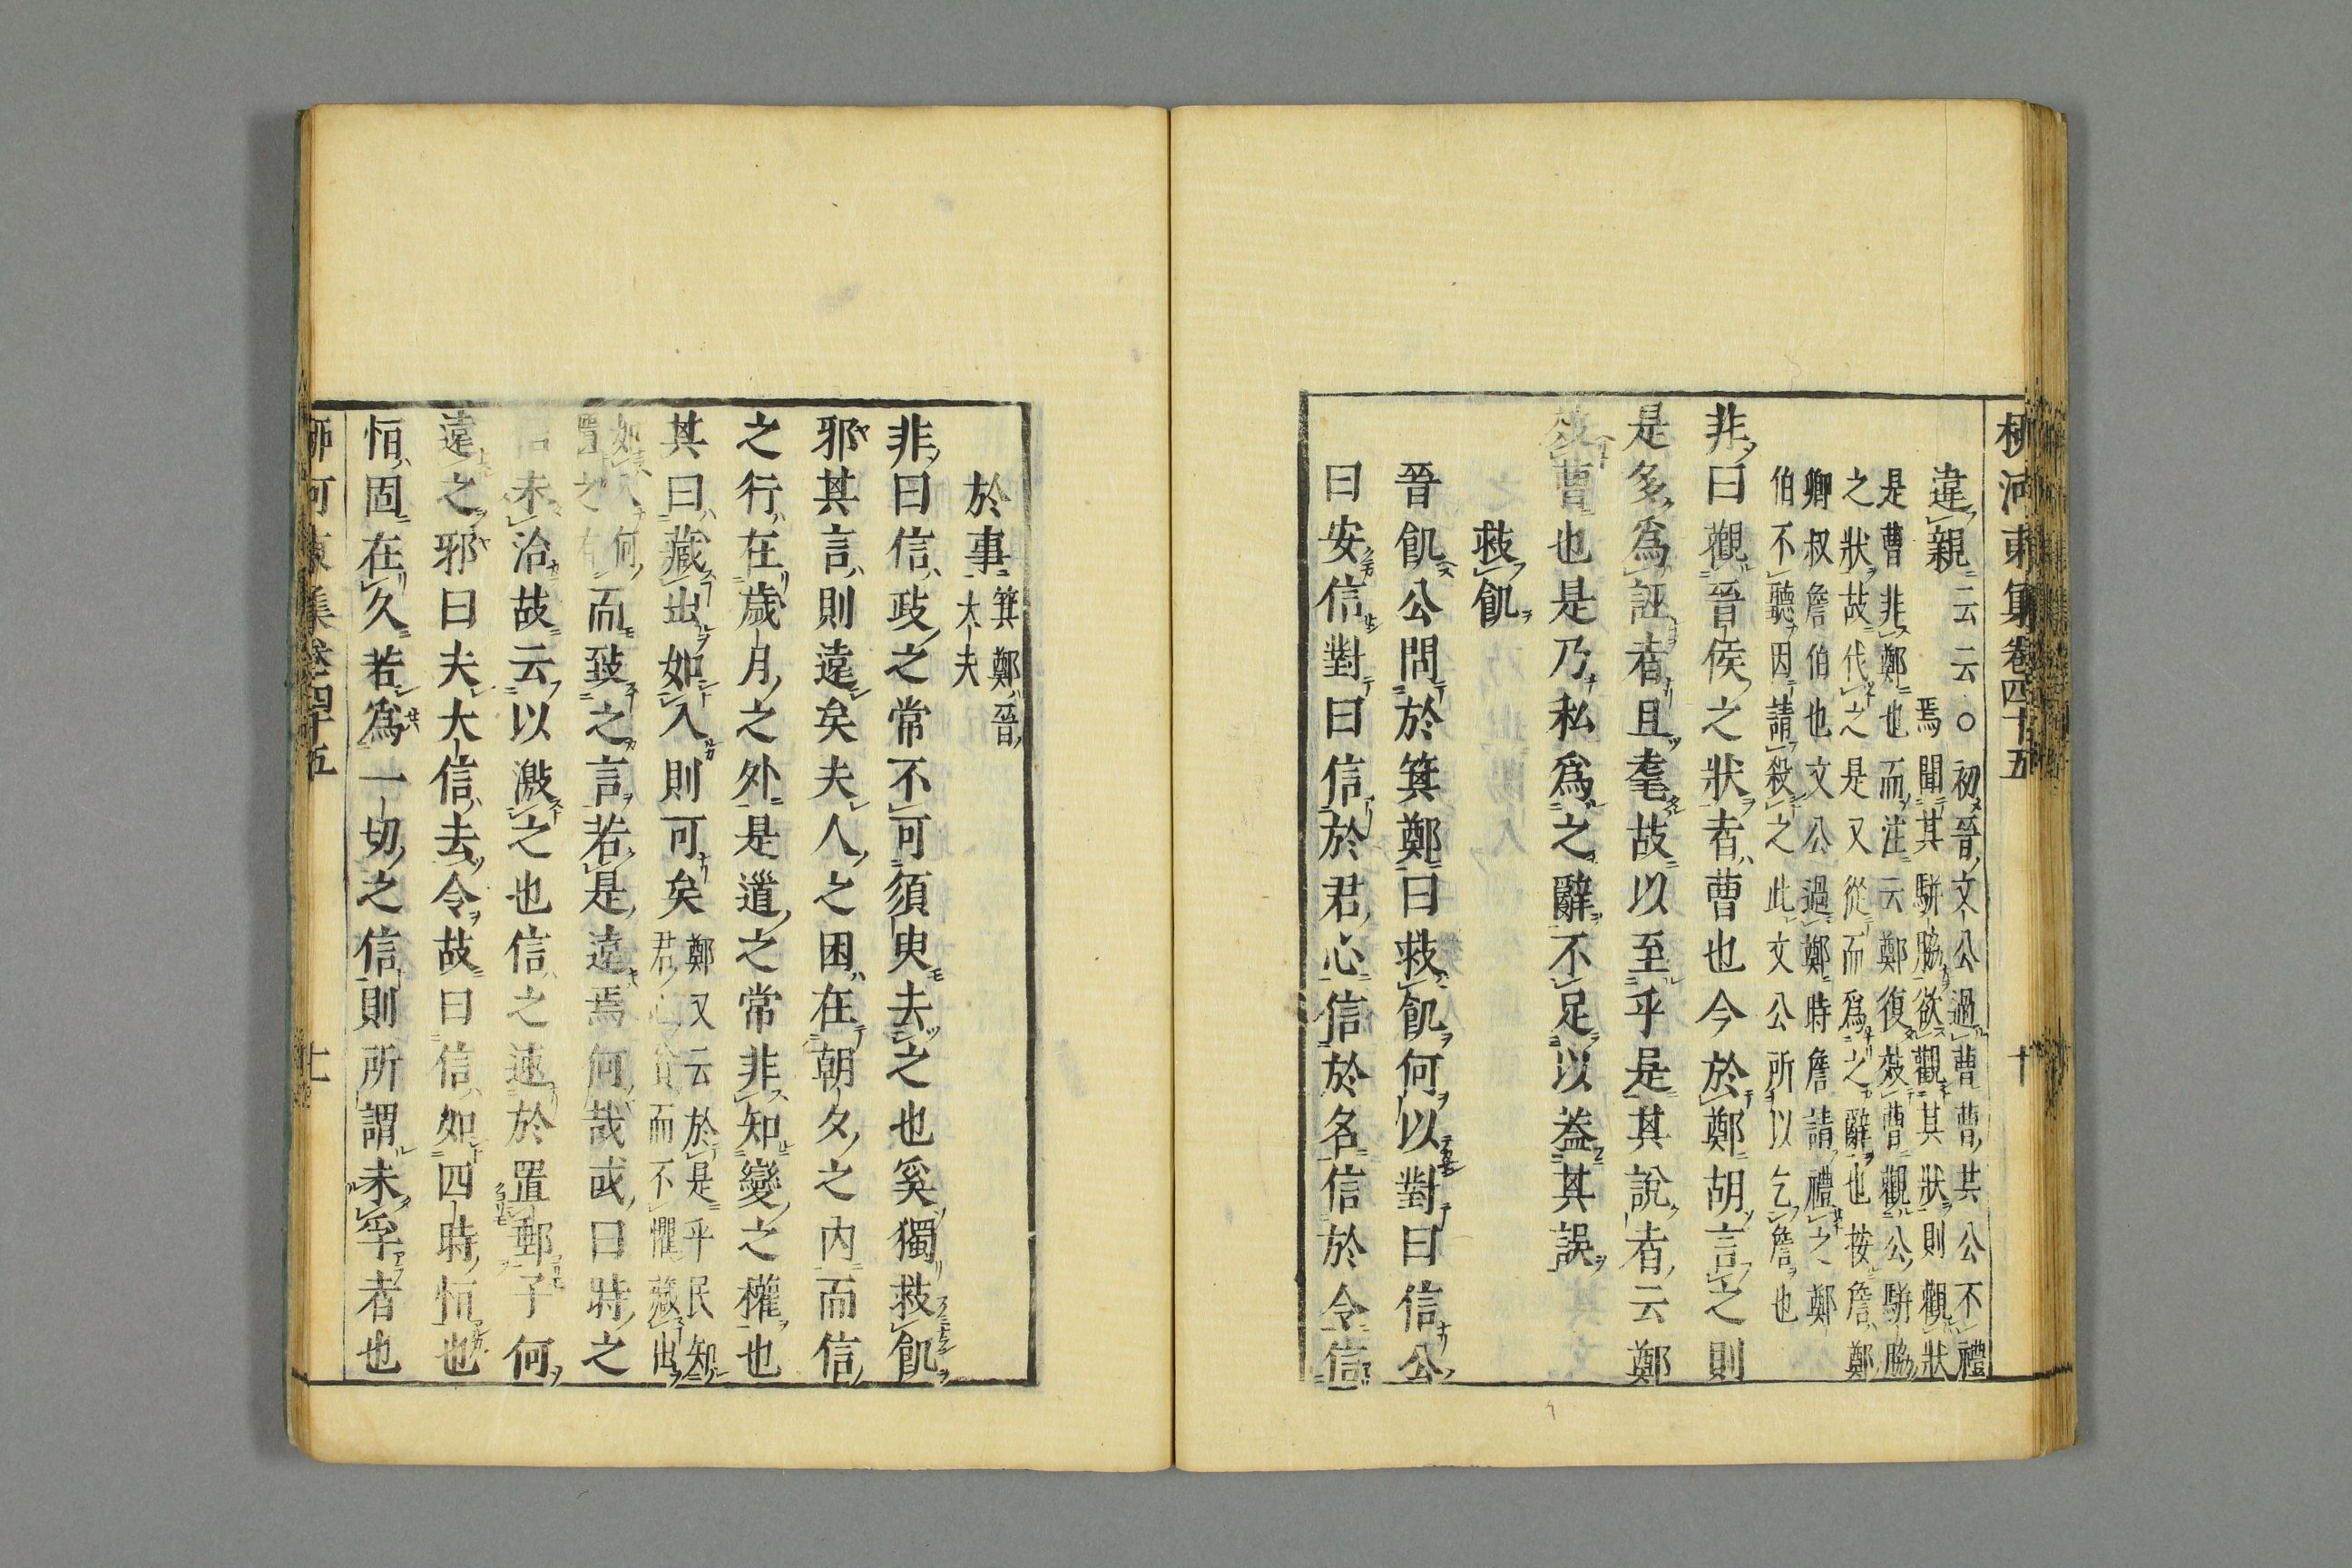 柳河東集卷四十五 十
違親云云○初晉文公過曹曹其公不禮
焉聞其駢脇欲觀其狀則觀狀
是曹非鄭也而注云鄭復效曹觀公駢脇
之狀故代之是又從而爲之辭也按詹鄭
卿叔詹伯也文公過鄭時詹請禮之鄭
伯不聽因請殺之此文公所以乞詹也
非曰觀晉侯之狀者曹也今於鄭胡言之則
是多爲誣者且耄故以至乎是其說者云鄭
效曹也是乃私爲之辭不足以盖其誤
救飢
晉飢公問於箕鄭曰救飢何以對曰信公
曰安信對曰信於君心信於名信於令信
於事箕鄭晉大夫
非曰信政之常不可須臾去之也奚獨救飢
邪其言則遠矣夫人之困在朝夕之内而信
之行在歲月之外是道之常非知變之權也
其曰藏出如入則可矣鄭又云於是乎民知
君心貧而不懼藏出
如入何
置之有而致之言若是遠焉何哉或曰時之
信未洽故云以激之也信之速於置郵子何
遠之邪曰夫大信去令故曰信如四時恒也
恒固在久若爲一切之信則所謂未孚者也
柳河東集卷四十五 十一